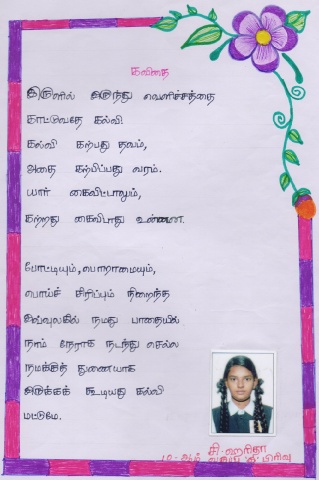 கவிதை
இருளில் இருந்து வெளிச்சத்தை
காட்டுவதே கல்வி
கல்வி கற்பது தவம்,
அதை கற்பிப்பது வரம்.
யார் கைவிட்டாலும்,
கற்றது கைவிடாது உன்னை.
போட்டியும், பொறாமையும்,
பொய்ச் சிரிப்பும் நிறைந்த
இவ்வுலகில் நமது பாதையில்
நாம் நேராக நடந்து செல்ல
நமக்குத் துணையாக
இருக்கக் கூடியது கல்வி
மட்டுமே.
சி. ஹரிதா
10-ஆம் வகுப்பு பிரிவு